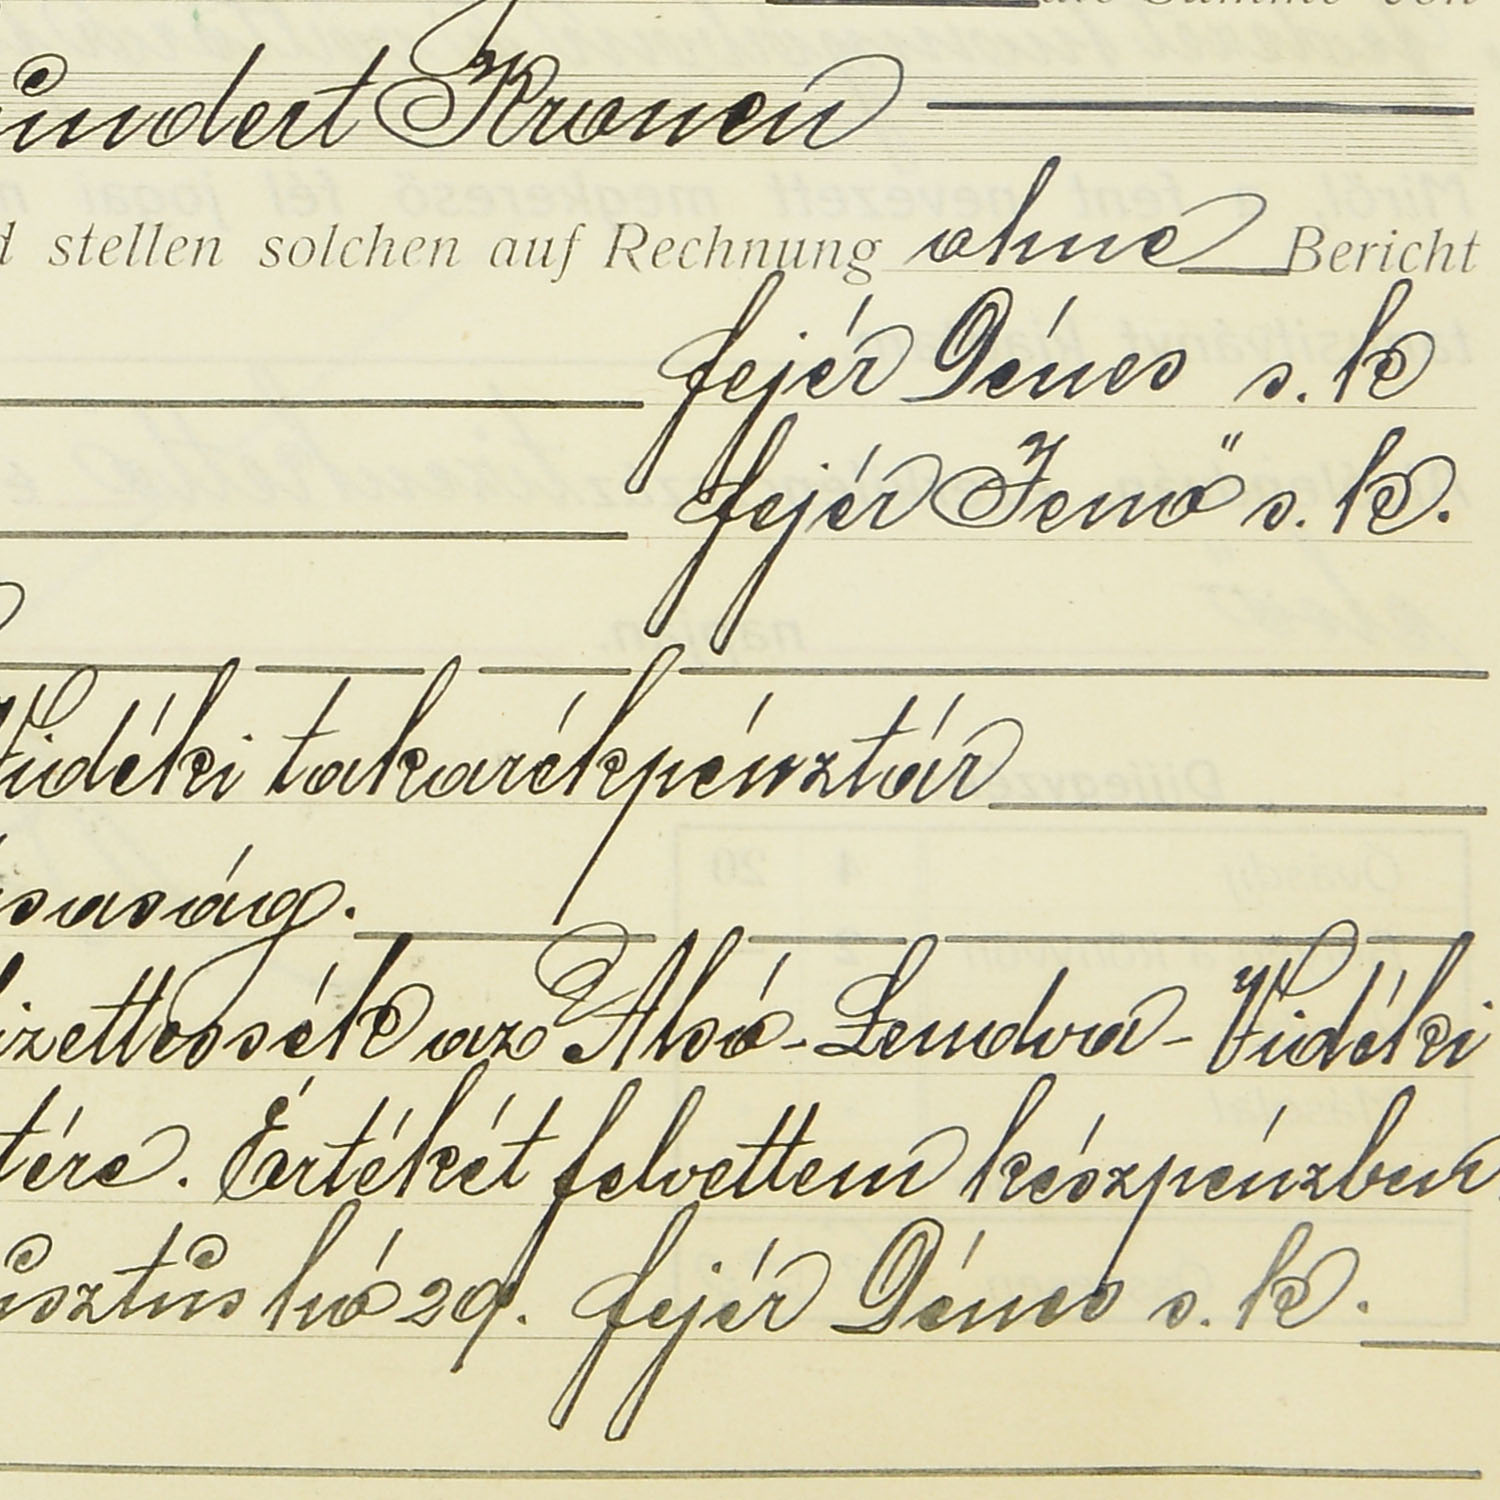 die Summe von
hundert Kronen
d stellen solchen auf Rechnung ohne Bericht
fejér Dénes s. k
fejér Jenő s. k.
Vidéki takarékpénztár
saság.
izettessék az Alsó-Lendva-Vidéki
tére. Értékét felvettem készpénzben
usztus hó 29. fejér Dénes s. k.